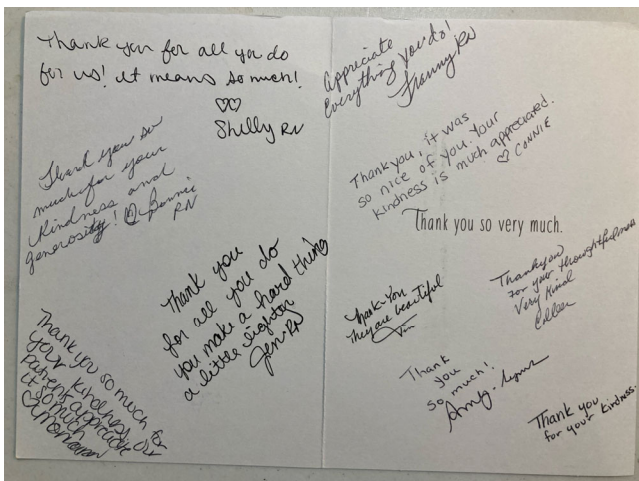 Thank you for all you do
for us! it means so much!
♡♡
Shelly RN
Thank you so
much for your
kindness and
generosity! Bonnie
RN
Thank you
for all you do
you make a hard thing
a little lighter
Jen RN
Thank you so much for
your kindness. Our
patients appreciate
it so much
♡ Morgan
Appreciate
Everything you do!
Franny RN
Thank you, it was
so nice of you. Your
kindness is much appreciated.
♡ CONNIE
Thank you so very much.
Thank-You
They are beautiful
Thankyou
for your thoughtfulness
Very Kind
Colleen
Thank
you
so much!
Amy
Thank you
for your kindness.